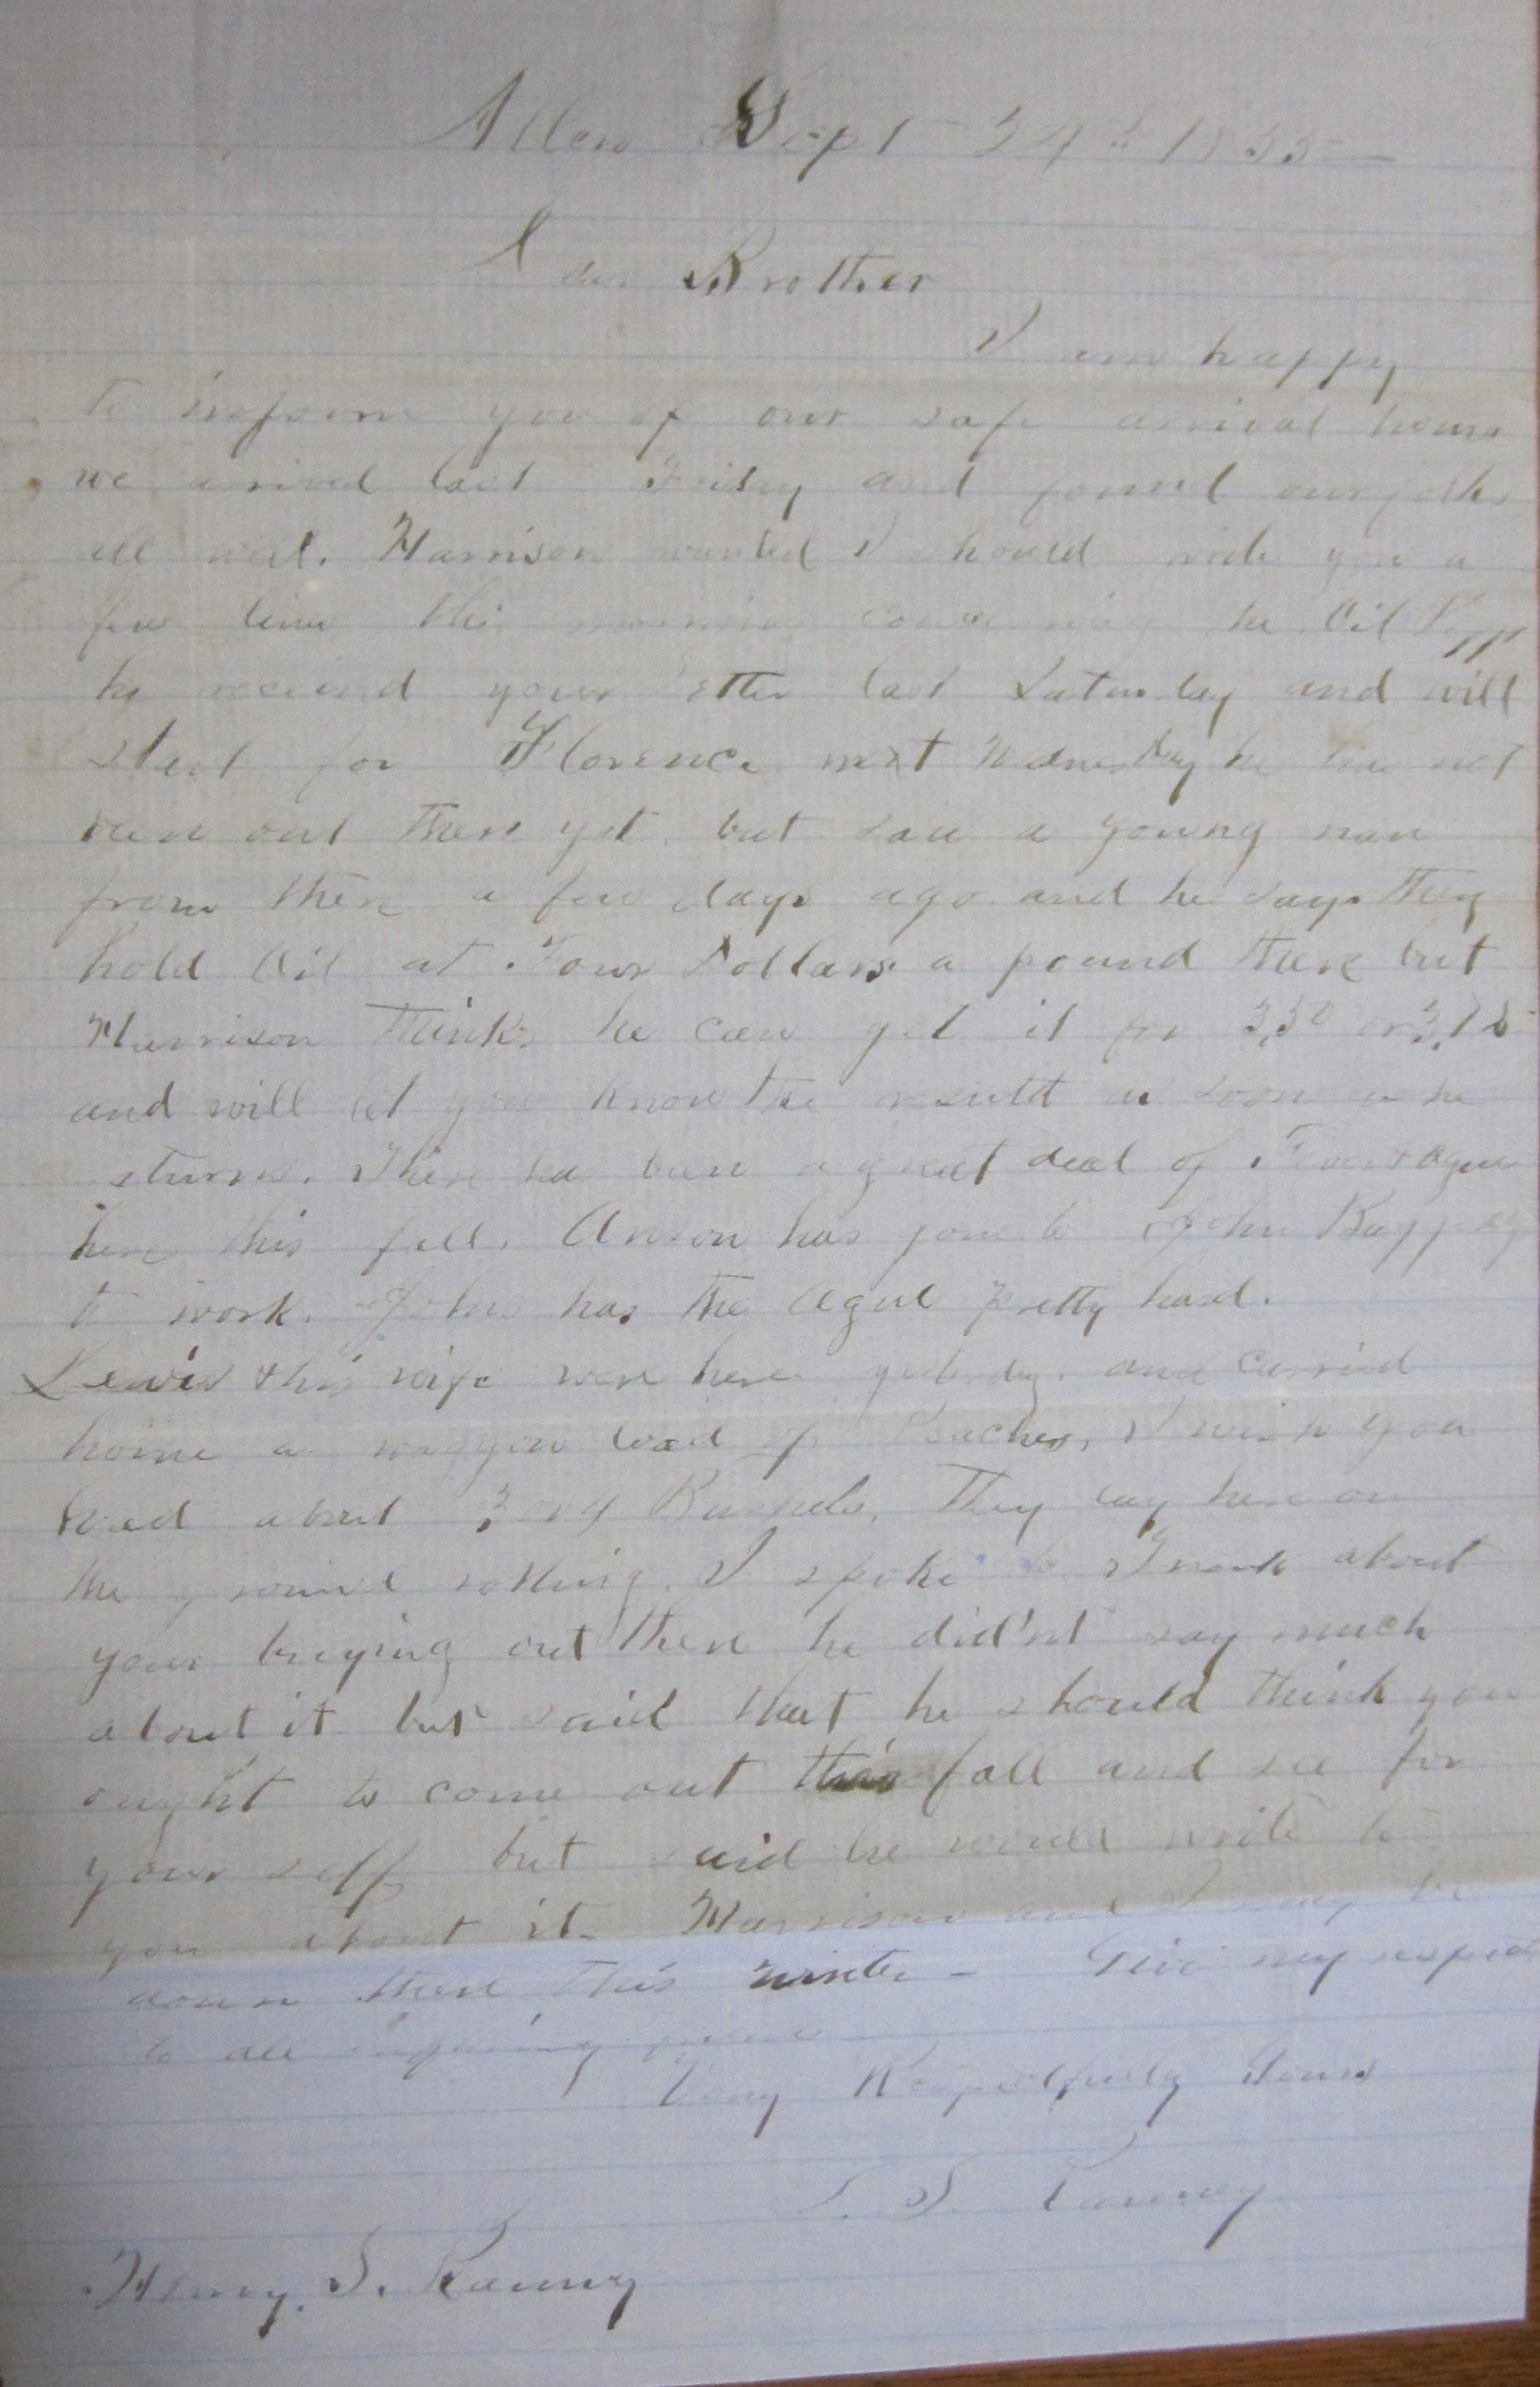 Allen Sept 24th 1855
Dear Brother
I am happy
to inform you of our safe arrival home
we arrived last Friday and found our folks
all well. Harrison wanted I should write you a
few lines this morning concerning the Oil Pepp
he received your letter last Saturday and will
start for Florence next Wednesday he has not
been out there yet but saw a young man
from there a few days ago and he says they
hold Oil at Four Dollars a pound there but
Harrison thinks he can get it for 3,50 or 3,75
and will let you know the result as soon as he
returns. There has been a great deal of Fever & ague
here this fall. Anson has gone to John
to work. John has the Ague pretty hard.
Lewis & his wife were here yesterday and carried
home a waggon load of Peaches, I wish you
had about 3 or 4 Bushels, They lay here on
the ground rotting. I spoke to Frank about
your buying out there he did'nt say much
about it but said that he should think you
ought to come out this fall and see for
your self but said he would write to
you about it. Harrison and I may be
down there this winter - Give my respects
to all inquiring friends
Very Respectfully Yours
L. S. Ranney
Henry. S. Ranney